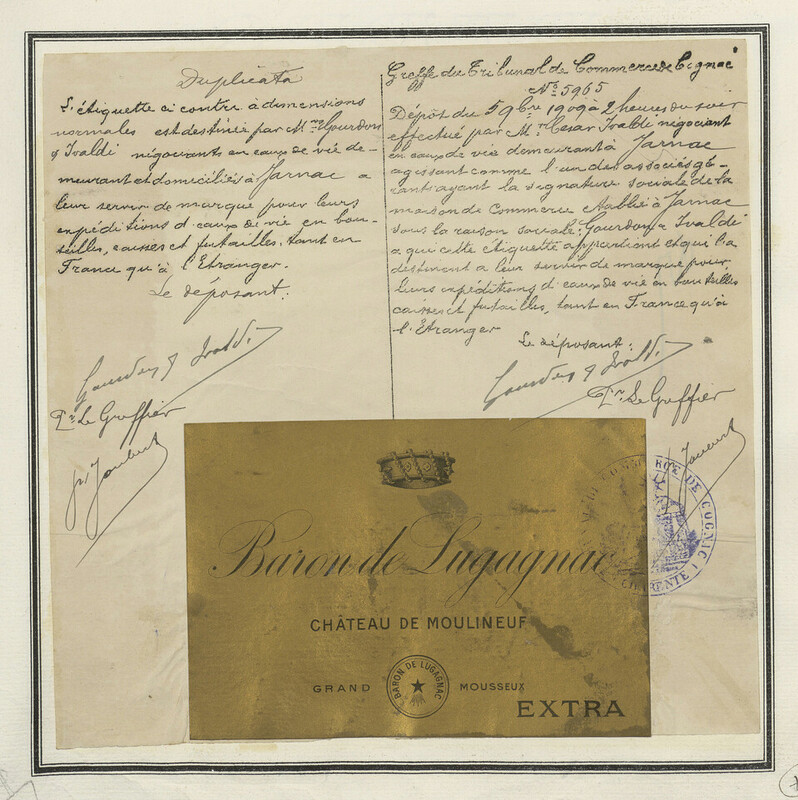 Duplicata
L'étiquette ci contre à dimensions
normales est destinée par Mrs Gourdon
& Ivaldi négociants en eaux de vie de-
meurant et domiciliés à Jarnac a
leur servir de marque pour leurs
expéditions d'eaux de vie en bou-
teilles, caisses et futailles, tant en
France qu'à l'Etranger.
Le déposant:
Gourdon & Ivaldi
Le Greffier
Greffe du Tribunal de Commerce de Cognac
No 5965
Dépôt du 5 9bre 1909 à 2 heures du soir
effectué par Mr César Ivaldi négociant
en eaux de vie demeurant à Jarnac
agissant comme l'un des associés gé-
rants ayant la signature sociale de la
maison de Commerce établie à Jarnac
sous la raison sociale: Gourdon & Ivaldi
a qui cette étiquette appartient et qui la
destinent a leur servir de marque pour
leurs expéditions d'eaux de vie en bouteilles
caisses et futailles, tant en France qu'à
l'Etranger
Le déposant:
Gourdon & Ivaldi
Le Greffier
Baron de Lugagnac
CHÂTEAU DE MOULINEUF
GRAND MOUSSEUX
BARON DE LUGAGNAC
EXTRA
DE COGNAC